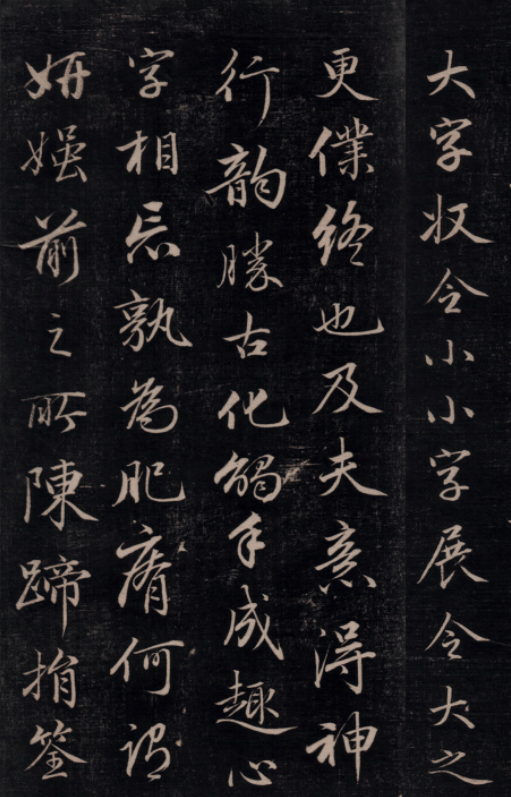 大字収令小小字展令大之
更僕終也及夫意得神
行韵勝古化觸手成趣心
字相忘孰為肥瘠何謂
妍媸前之所陳蹄捐筌